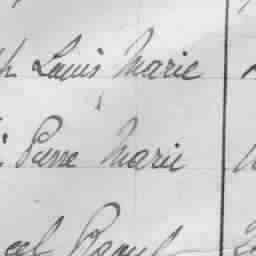 h Louis Marie
Pierre Marie
cel Raoul